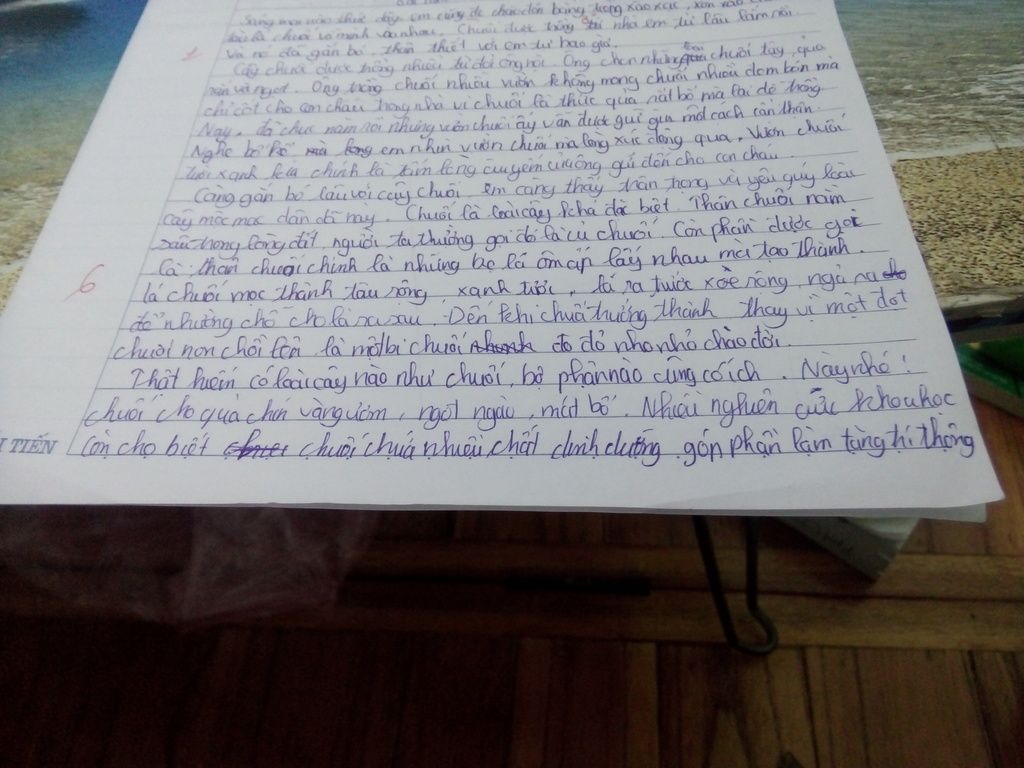 Sáng mai nào thức dậy em cũng được chào đón bằng trong xào xạc, xôn xao
tàu lá chuối vỗ mình vào nhau. Chuối được trồng từ nhà em từ lâu lắm rồi
và nó đã gắn bó, thân thiết với em từ bao giờ.
1
Cây chuối được trồng nhiều từ đời ông nội. Ông chọn những chuối tây, quả
mẩn và ngọt. Ông trồng chuối nhiều vườn không mong chuối nhiều đem bán mà
chỉ cốt cho con cháu trong nhà vì chuối là thức quả rất bổ mà lại dễ trồng
Nay, đã chục năm rồi nhưng vườn chuối ấy vẫn được giữ gìn một cách cẩn thận.
Nghe bố kể em nhìn vườn chuối mà lòng xúc động quá. Vườn chuối
tươi xanh kia chính là tấm lòng của ông gửi đến cho con cháu.
Càng gắn bó lâu với cây chuối em càng thấy trân trọng và yêu quý loài
cây mộc mạc dân dã này. Chuối là loài cây khá đặc biệt. Thân chuối nằm
sâu trong lòng đất, người ta thường gọi đó là củ chuối. Còn phần được gọi
6
là thân chuối chính là những bẹ lá ôm ấp lấy nhau mà tạo thành.
lá chuối mọc thành tàu rộng, xanh tươi, lá ra trước xoè rộng, ngả ra
để nhường chỗ cho lá ra sau. Đến khi chuối trưởng thành thay vì một đọt
chuối non chồi lên là một bi chuối đo đỏ nho nhỏ chào đời.
Thật hiếm có loài cây nào như chuối, bộ phận nào cũng có ích. Này nhé!
chuối cho quả chín vàng ươm, ngọt ngào, mát bổ. Nhiều nghiên cứu khoa học
còn cho biết chuối chứa nhiều chất dinh dưỡng góp phần làm tăng trí thông
TIẾN